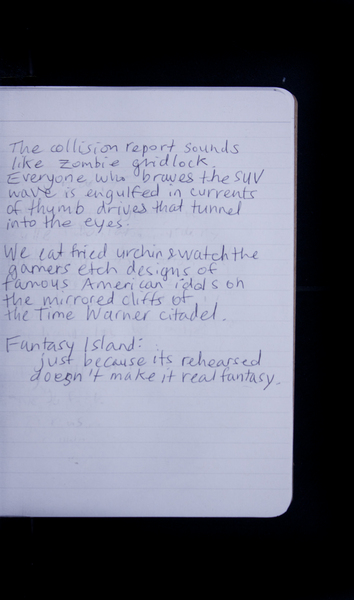 The collision report sounds
like zombie gridlock.
Everyone who braves the SUV
wave is engulfed in currents
of thumb drives that tunnel
into the eyes.
We eat fried urchin & watch the
gamers etch designs of
famous American idols on
the mirrored cliffs of
the Time Warner citadel.
Fantasy Island:
just because its rehearsed
doesn't make it real fantasy.